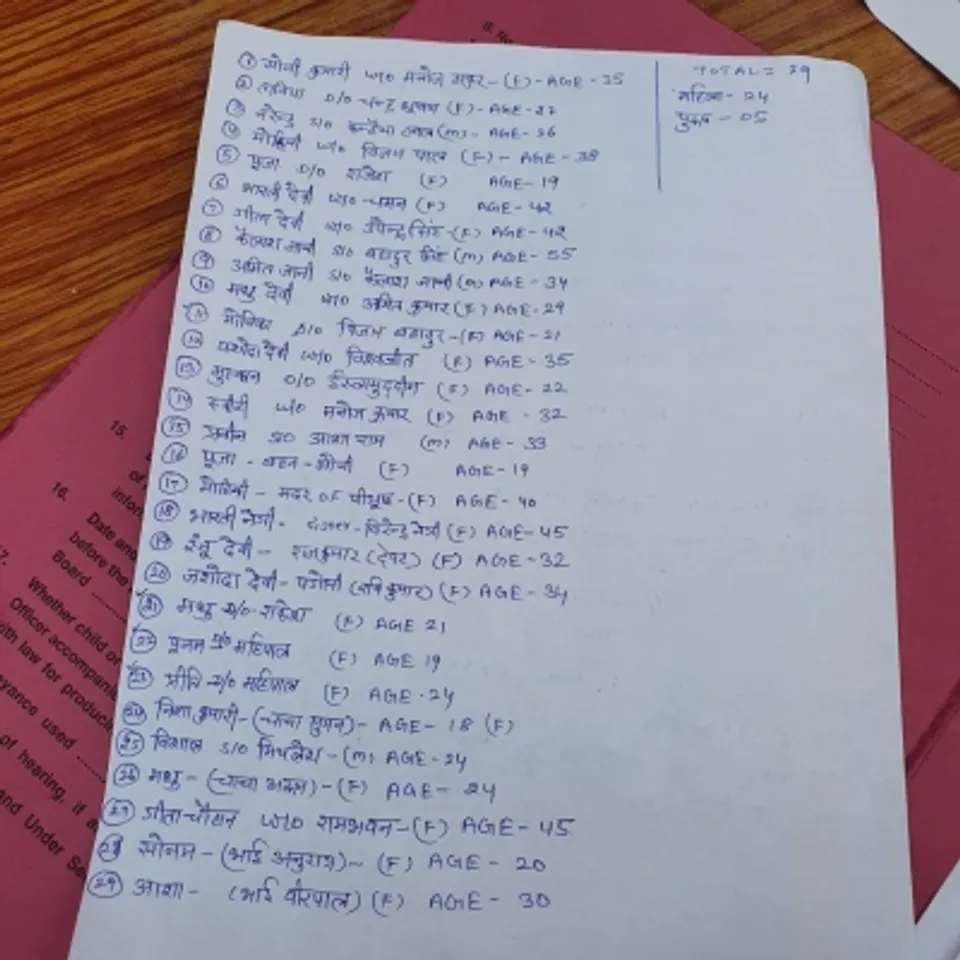 ① सोनी कुमारी w/o मनोज - (F) - AGE - 35
② D/o चन्द्र भूषण (F) - AGE - 27
③ नरेन्द्र S/o कन्हैया लाल (M) - AGE - 36
④ मोहिनी w/o विजय पाल (F) - AGE - 38
⑤ पूजा D/o राजेश (F) AGE - 19
⑥ भारती देवी w/o चमन (F) AGE - 42
⑦ गीता देवी w/o उपेन्द्र सिंह - (F) AGE - 42
⑧ कैलाश जानी S/o बहादुर सिंह (M) AGE - 55
⑨ अमित जानी S/o कैलाश जानी (M) AGE - 34
⑩ मधु देवी w/o अमित कुमार (F) AGE - 29
⑪ मोनिका D/o विजय बहादुर - (F) AGE - 21
⑫ यशोदा देवी w/o विश्वजीत (F) AGE - 35
⑬ मुस्कान D/o ईस्लामुद्दीन (F) AGE - 22
⑭ w/o मनोज कुमार (F) AGE - 32
⑮ प्रवीन S/o आशा राम (M) AGE - 33
⑯ पूजा - बहन - (F) AGE - 19
⑰ मोहिनी - मदर OF पीयूष - (F) AGE - 40
⑱ भारती नेगी - sister - विरेन्द्र नेगी (F) AGE - 45
⑲ देवी - राजकुमार (देवर) (F) AGE - 32
⑳ जशोदा देवी - पडोसी (रवि कुमार) (F) AGE - 34
㉑ मधु D/o - राकेश (F) AGE 21
㉒ पूनम D/o महिपाल (F) AGE 19
㉓ प्रीति D/o महिपाल (F) AGE - 24
㉔ निशा कुमारी - (चाचा सुमन) - AGE - 18 (F)
㉕ विशाल S/o मिथलेश - (M) AGE - 24
㉖ मधु - (चाचा) - (F) AGE - 24
㉗ गीता चौहान w/o रामभवन - (F) AGE - 45
㉘ सोनम - (भाई अनुराग) - (F) AGE - 20
㉙ आशा - (भाई वीरपाल) (F) AGE - 30
TOTAL = 29
महिला - 24
पुरुष - 05
8.
15.
of
16.
Date and
before the
Board
Whether child or
Officer accompani
ith law for producin
veyance used
of hearing, if a
and Under Se